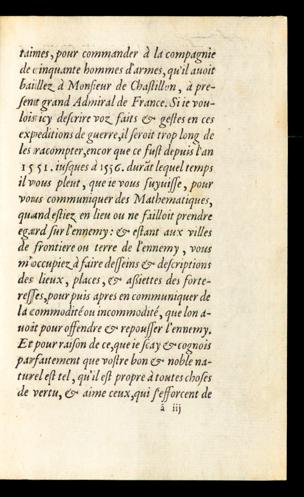 taines, pour commander à la compagnie
de cinquante hommes d'armes, qu'il auoit
baillez à Monsieur de Chastillon, à pre-
sent grand Admiral de France. Si ie vou-
lois icy descrire voz faits & gestes en ces
expeditions de guerre, il seroit trop long de
les racompter, encor que ce fust depuis l'an
1551. iusques à 1556. durāt lequel temps
il vous pleut, que ie vous suyuisse, pour
vous communiquer des Mathematiques,
quand estiez en lieu ou ne failloit prendre
egard sur l'ennemy: & estant aux villes
de frontiere ou terre de l'ennemy, vous
m'occupiez à faire desseins & descriptions
des lieux, places, & assiettes des forte-
resses, pour puis apres en communiquer de
la commodité ou incommodité, que lon a-
uoit pour offendre & repousser l'ennemy.
Et pour raison de ce, que ie sçay & cognois
parfaitement que vostre bon & noble na-
turel est tel, qu'il est propre à toutes choses
de vertu, & aime ceux, qui s'efforcent de
à iij